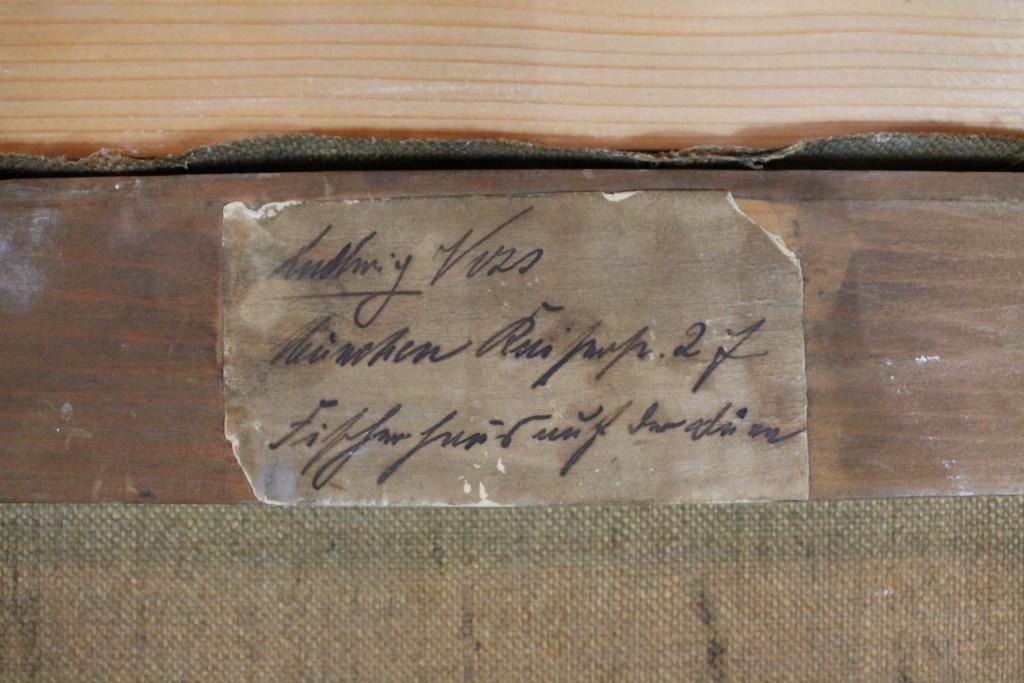 Ludwig Voss
München Kaiserstr. 27
Fischerhaus auf der Düne